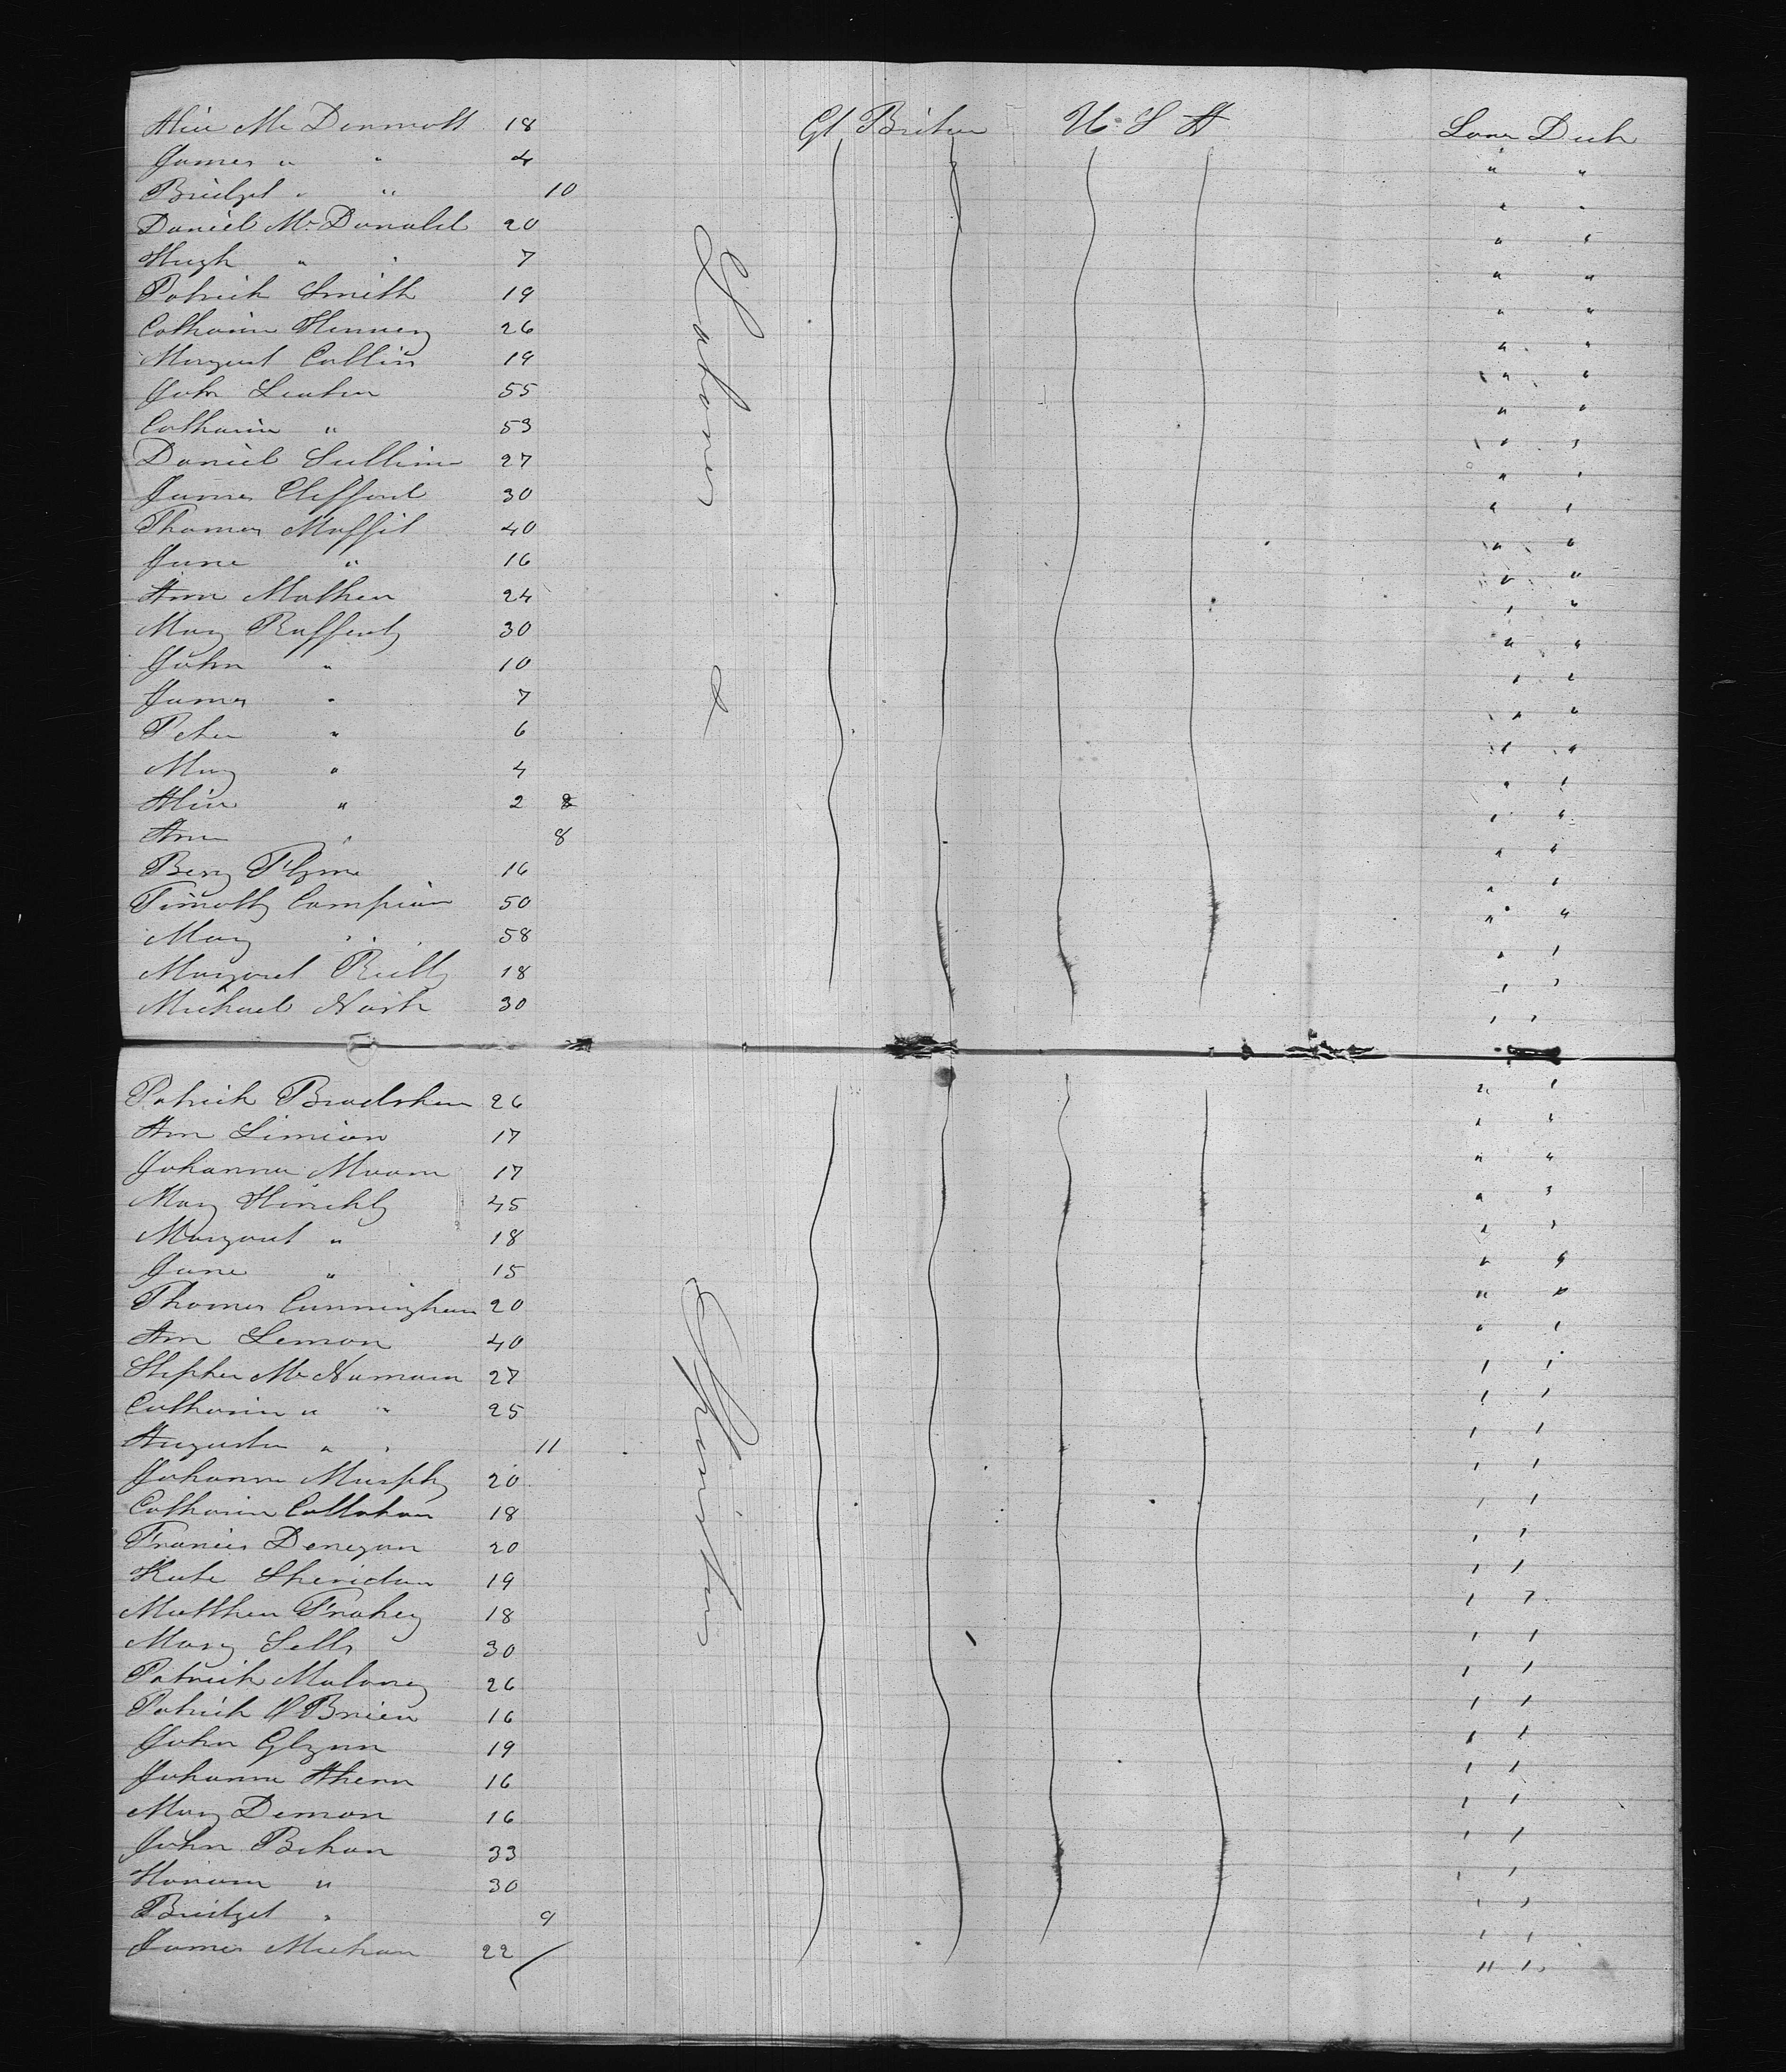 Alice Mc Dermott 18 Gt Britain U. S A Lower Deck
James " " 4 " "
Bridget " " 10 " "
Daniel Mc Donald 20 " "
Hugh " " 7 " "
Patrick Smith 19 " "
Catharine 26 " "
Margaret Collins 19 " "
John 55 " "
Catharine " 53 " "
Daniel Sullivan 27 " "
James Clifford 30 " "
Thomas Moffit 40 " "
Jane " 16 " "
Ann 24 " "
Mary Rafferty 30 " "
John " 10 " "
James " 7 " "
Peter " 6 " "
Mary " 4 " "
Alice " 2 " "
Ann " 8 " "
Flynn 16 " "
Timothy Campion 50 " "
Mary " 58 " "
Margaret Reilly 18 " "
Michael Nash 30 " "
Laborers
&
Patrick Bradshaw 26 " "
Ann 17 " "
Johanna 17 " "
Mary 45 " "
Margaret " 18 " "
Jane " 15 " "
Thomas Cunningham 20 " "
Ann Lemon 40 " "
Stephen Mc Namara 27 " "
Catharine " " 25 " "
" " 11 " "
Johanna Murphy 20 " "
Catharine Callahan 18 " "
Francis Denegan 20 " "
Kate Sheridan 19 " "
Matthew 18 " "
Mary 30 " "
Patrick Maloney 26 " "
Patrick O Brien 16 " "
John Glynn 19 " "
Johanna Ahern 16 " "
Mary 16 " "
John Behan 33 " "
" 30 " "
Bridget " 9 " "
James Meehan 22 " "
Spinsters